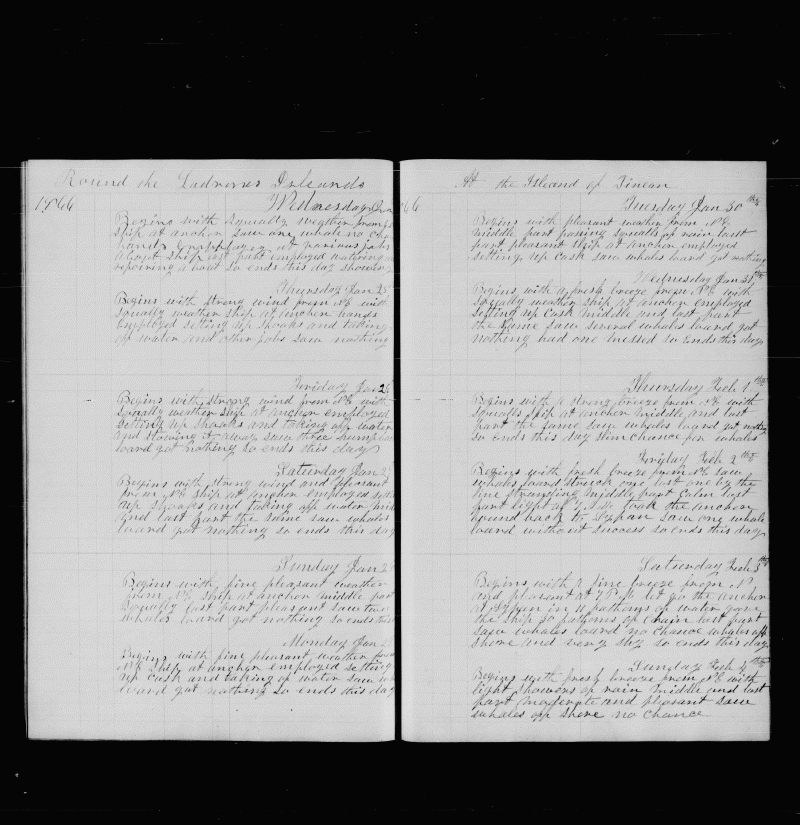 Round the Ladrones Islands
1866
Wednesday Jan
Begins with squally weather from
ship at anchor saw one whale no ch
hands employed at various jobs
about ship last part employed watering a
repairing a boat so ends this day showery
Thursday Jan 2
Begins with strong wind from NE with
squally weather ship at anchor hands
employed setting up shooks and taking
of water and other jobs saw nothing
Friday Jan 26
Begins with strong wind from NE with
squally weather ship at anchor employed
setting up shooks and taking off water
and stowing it away saw three humpbac
loard got nothing so ends this day
Saturday Jan 2
Begins with strong wind and pleasant
from NE ship at anchor employed sett
up shooks and taking off water mid
and last part the same saw whales
loard got nothing so ends this day
Sunday Jan 2
Begins with fine pleasant weather
from NE ship at anchor middle part
squally last part pleasant saw two
whales loard got nothing so ends this
Monday Jan 2
Begins with fine pleasant weather from
NE ship at anchor employed setting
up cask and taking of water saw w
loard got nothing so ends this day
At the Island of Tinean
66
Tuesday Jan 30th
Begins with pleasant weather from NE
middle part passing squalls of rain last
part pleasant ship at anchor employed
setting up cask saw whales loard got nothing
Wednesday Jan 31th
Begins with a fresh breeze from NE with
squally weather ship at anchor employed
setting up cask middle and last part
the same saw several whales loard got
nothing had one bessed so ends this day
Thursday Feb 1th
Begins with a strong breeze from NE with
squalls ship at anchor middle and last
part the same saw whales loard got nothing
so ends this day slim chance for whales
Friday Feb 2th
Begins with fresh breeze from NE saw
whales loard struck one lost one by the
line stranding middle part calm last
part light at 7 AM took the anchor
bound back to Sypan saw one whale
loard without success so ends this day
Saturday Feb 3th
Begins with a fine breeze from N
and pleasant at 7 PM let go the anchor
at Sypan in 11 pathoms of water gave
the ship 50 pathoms of chain last part
saw whales loard no chance whales off
shore and very shy so ends this day
Sunday Feb 4th
Begins with fresh breeze from NE with
light showers of rain middle and last
part moderate and pleasant saw
whales off shore no chance